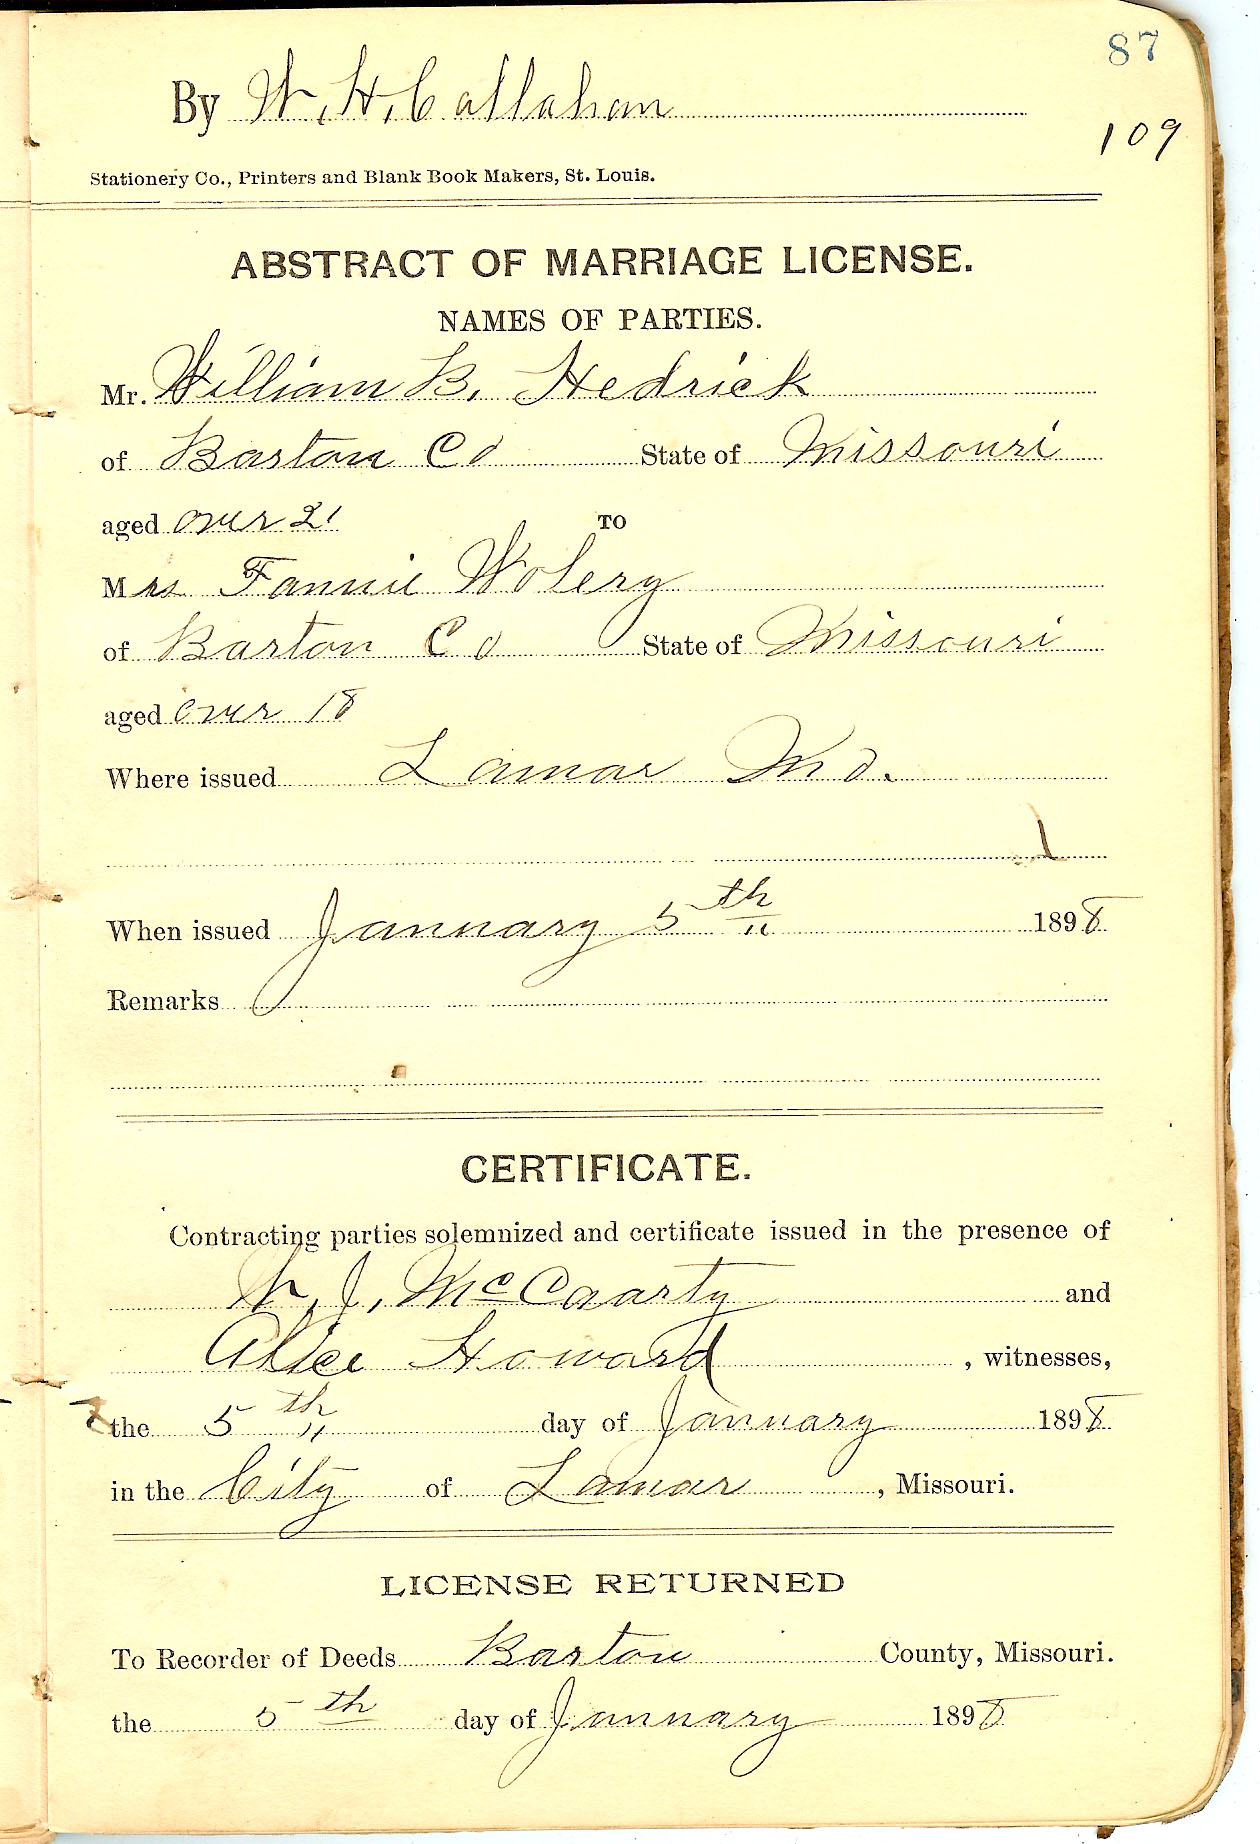 87
By W. H. Callahan
109
Stationery Co., Printers and Blank Book Makers, St. Louis.
ABSTRACT OF MARRIAGE LICENSE.
NAMES OF PARTIES.
Mr. William B. Hedrick
of Barton Co State of Missouri
aged over 21 TO
Mrs Fannie Wolery
of Barton Co State of Missouri
aged over 18
Where issued Lamar Mo.
When issued January 5th 1898
Remarks
CERTIFICATE.
Contracting parties solemnized and certificate issued in the presence of
W. J. McCaarty and
Alice Howard , witnesses,
the 5th day of January 1898
in the City of Lamar , Missouri.
LICENSE RETURNED
To Recorder of Deeds Barton County, Missouri.
the 5th day of January 1898